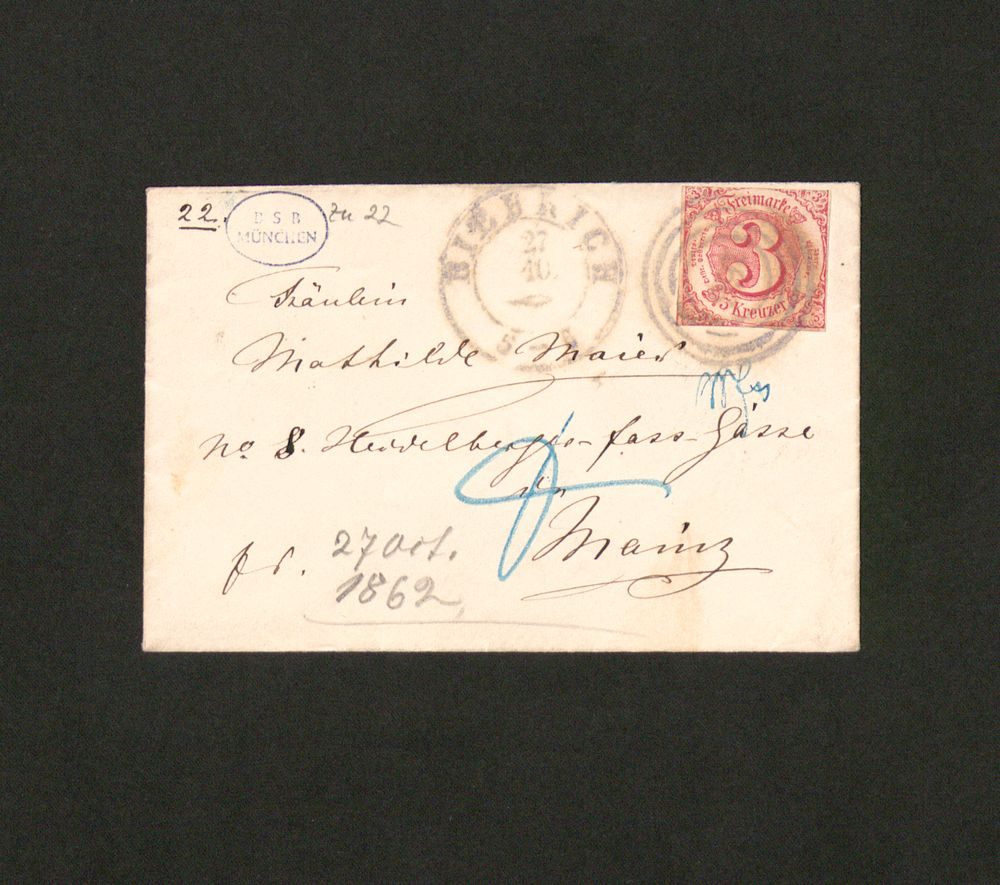 22. BSB MÜNCHEN Zu 22
BIEBRICH
27
10.
Freimarke
3
3 Kreuzer
Fräulein
Mathilde Maier
No 8. Heidelberger-fass-Gasse
in
Mainz
fr.
27 Oct.
1862